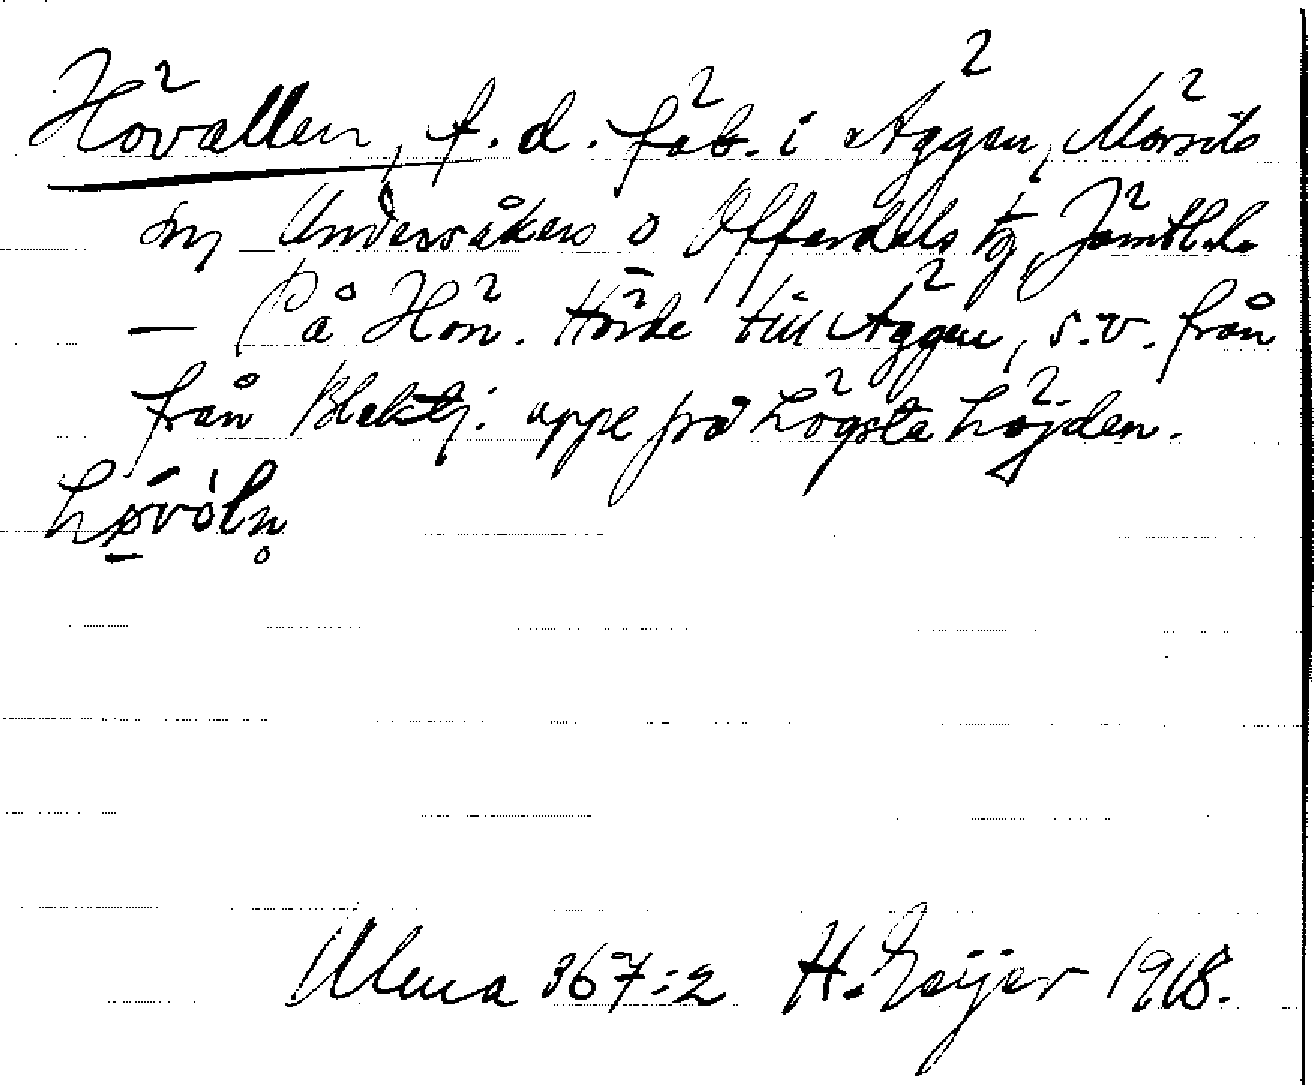 Hövallen, f. d. fäb. i Äggen, Mörsils
sn, Undersåkers o Offerdals tg, Jämtl. l.
— På Hön. Hörde till Äggen, s. v. från
från Blektj. uppe på högsta höjden.
høvòln̥
Ulma 367:2 H. Geijer 1918.